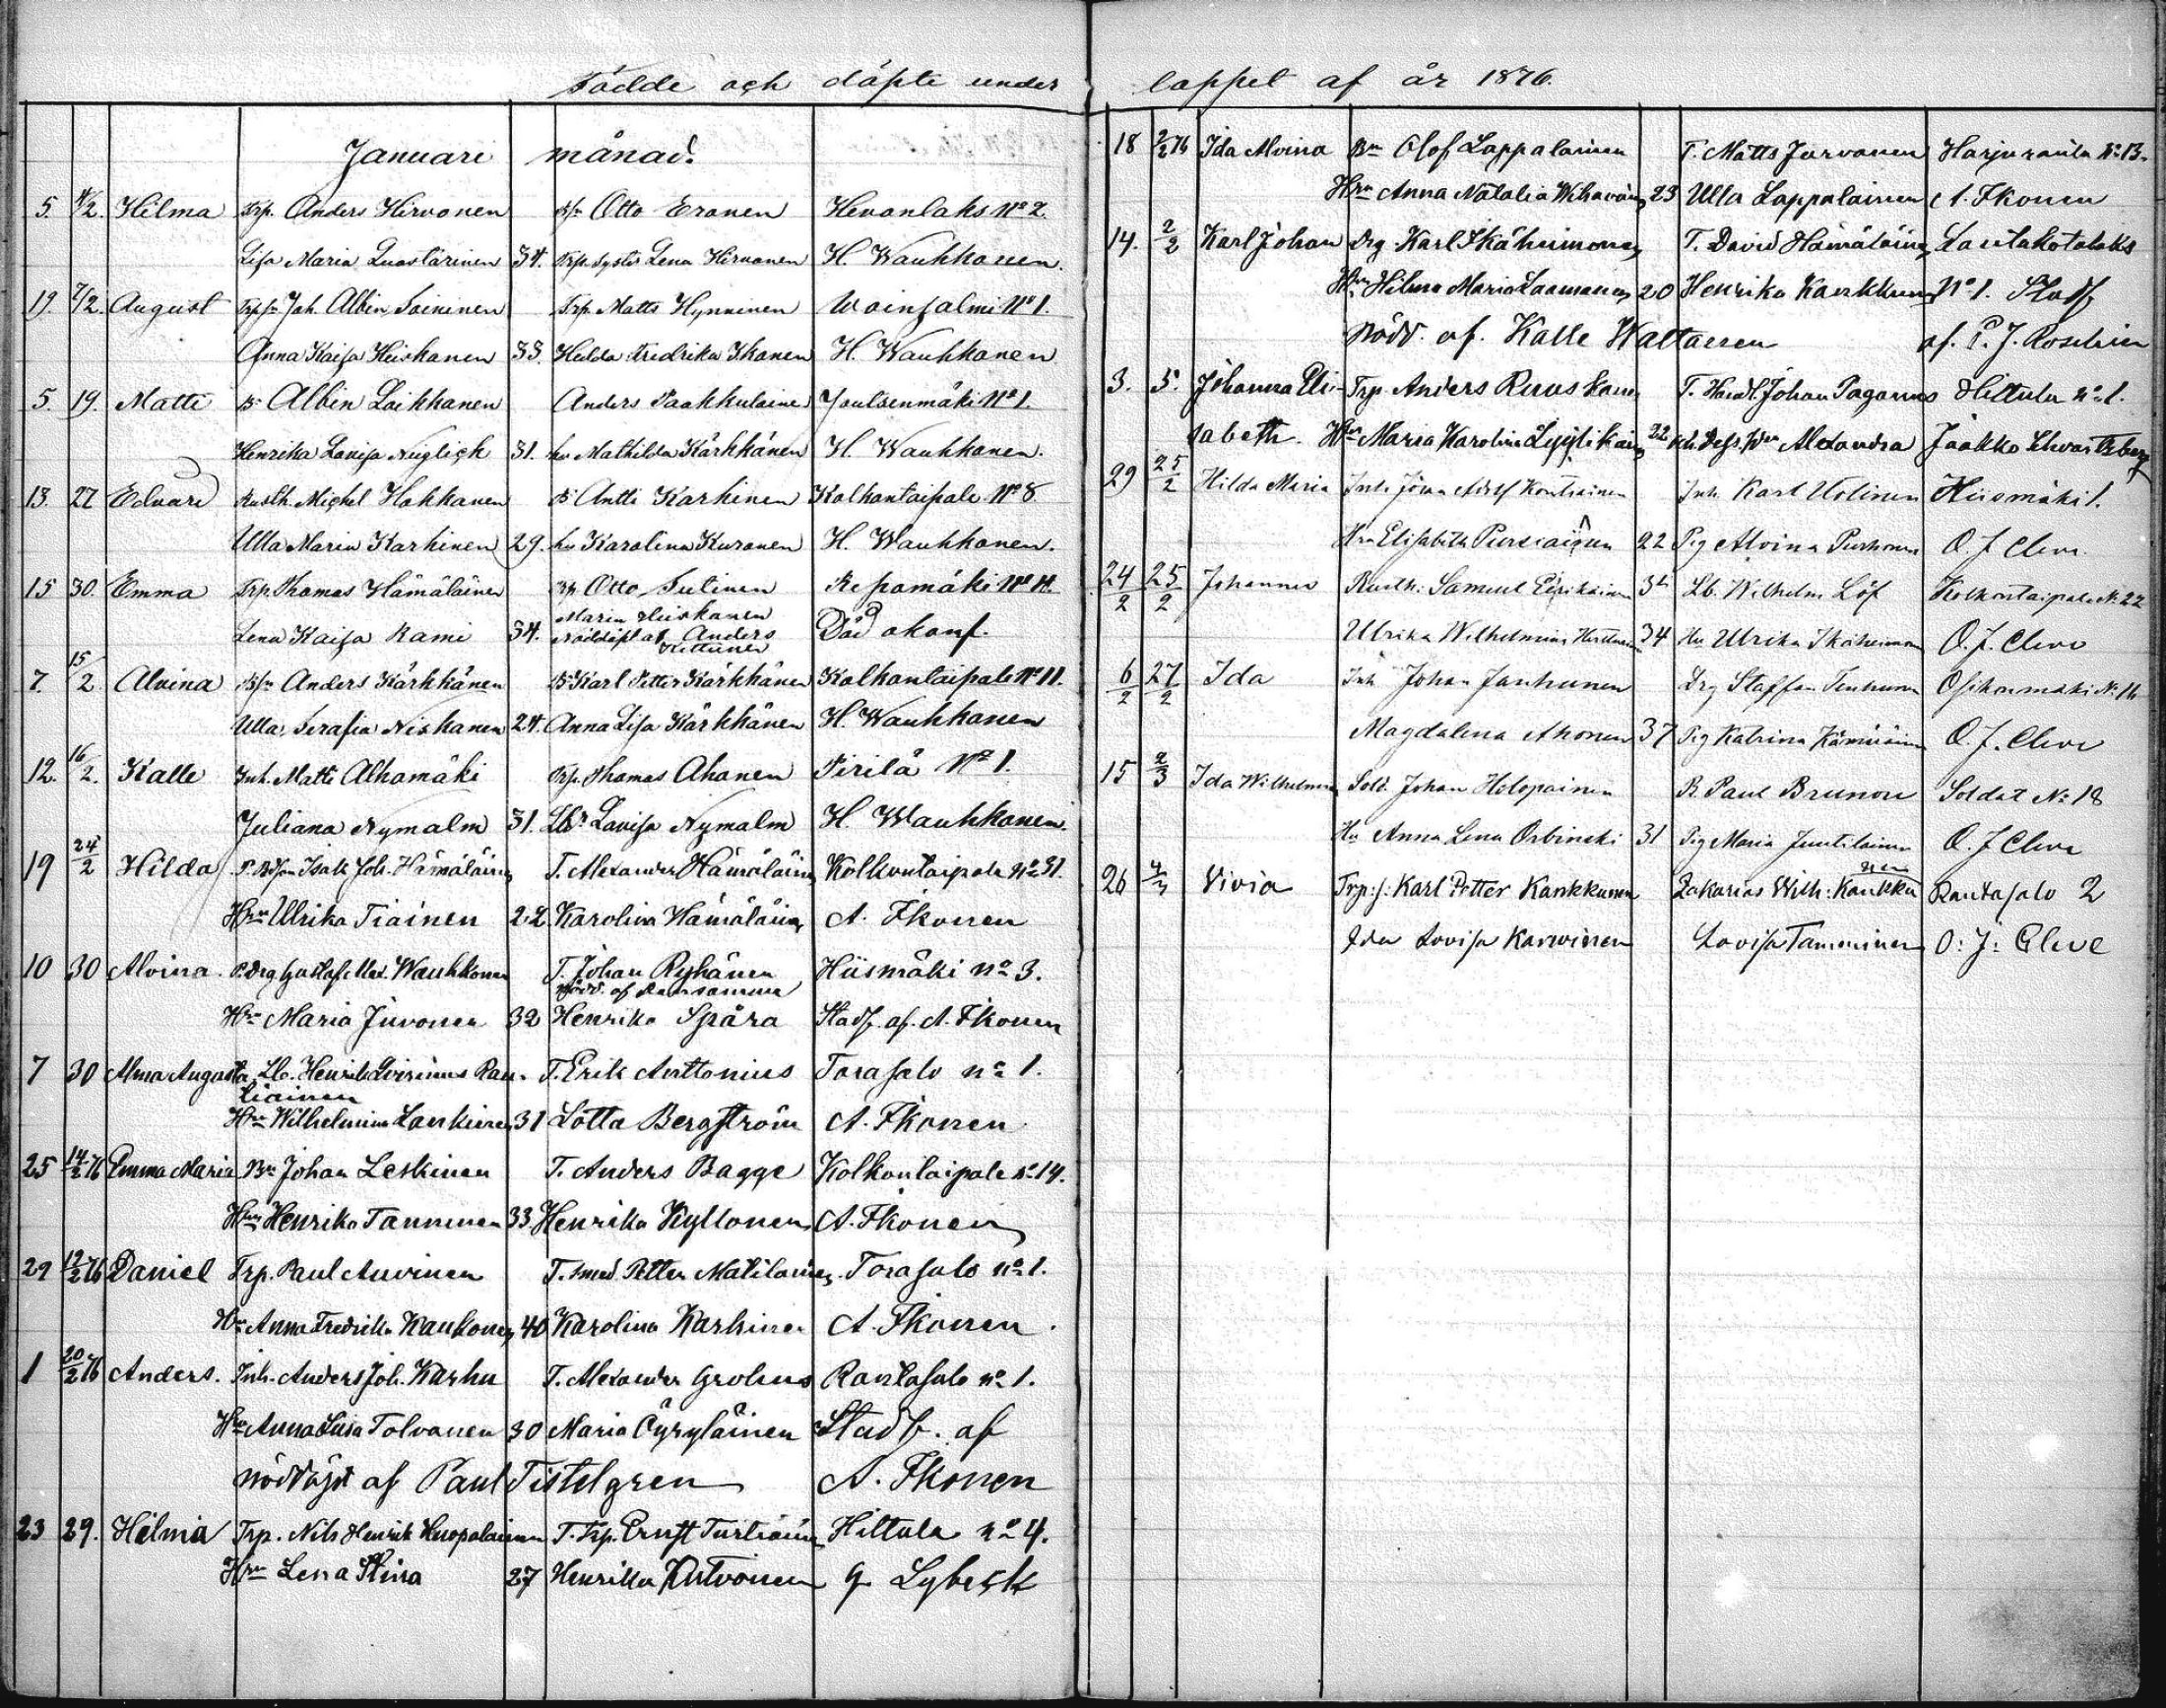 Födde och döpte under loppet af år 1876.
Januari månad.
5. 4/2. Hilma Trp. Anders Hirvonen Bs Otto Eronen Hevonlaks No 2.
Lisa Maria Qvastarinen 34. Trp. syster Lena Hirvonen H. Wauhkonen.
19. 7/2. August Trps Joh. Albin Soininen Trp. Matts Hynninen Woinsalmi No 1.
Anna Kaisa Heiskanen 33. Hilda Fredrika Ikonen H. Wauhkonen
5. 19. Matti B. Albin Loikkanen Anders Paakkulaine Joulsenmäki No 1.
Henrika Lovisa Nuglick 31. hu Mathilda Kärkkänen H. Wauhkonen.
13. 27 Edvard Rusth. Michel Hokkanen B. Antti Karhinen Kolkontaipale No 8
Ulla Maria Karhinen 29. hu Karolina Kuronen H. Wauhkonen.
15 30. Emma Trp. Thomas Hämäläinen Trp. Otto Sutinen Repomäki No 4.
Maria Heiskanen
Lena Kaisa Rami 34. Nöddöpt af Anders Kettunen Död okonf.
7. 15/2 Alvina Bs Anders Kärkkänen B. Karl Petter Kärkkänen Kolkontaipale No 11.
Ulla Serafia Niskanen 24. Anna Lisa Kärkkänen H. Wauhkonen
12. 16/2. Kalle Inh. Matti Alhomäki Trp. Thomas Ahonen Pirilä No 1.
Juliana Nymalm 31. Lovisa Nymalm H. Wauhkonen.
19 24/2 Hilda Isak Joh. Hämäläinen T. Alexander Hämäläinen Kolkontaipale No 31.
Hru Ulrika Tiainen 22 Karolina Hämäläinen A. Ikonen
10 30 Alvina. Gustaf Alex. Wauhkonen T. Johan Ryhänen Hiismäki No 3.
nödd. af densamma
Hru Maria Juvonen 32 Henrika Spåra Stadf. af A. Ikonen
7 30 Alma Augusta Lb. Henrik Qvirinus Rautiainen T. Erik Anttonius Torasalo No 1.
Hru Wilhelmina Lankinen 31 Lotta Bergström A. Ikonen
25 14/2 76 Emma Maria Bn Johan Leskinen T. Anders Bagge Kolkontaipale No 14.
Hru Henrika Tanninen 33 Henrika Kyllonen A. Ikonen
29 12/2 76 Daniel Trp. Paul Auvinen T. smed. Petter Matilainen Torasalo No 1.
Hru Anna Fredrika Kaukonen 40 Karolina Karhinen A. Ikonen.
1 20/2 76 Anders. Inh. Anders Joh. Karhu T. Alexander Grolnus Rantasalo No 1.
Hru Anna Lisa Tolvanen 30 Maria Öyryläinen Stadf. af
nöddöpt af Paul Tistelgren A. Ikonen
23 29. Helmia Trp. Nils Henrik Huopalainen T. Trp. Ernst Turtiainen Hiltula No 4.
Hru Lena Stina 27 Henrika Hutvonen G Lybeck
18 2/2 76 Ida Alvina Bn Olof Lappalainen T. Matts Jurvanen Harjuranta No 13.
Hru Anna Natalia Wihavainen 23 Ulla Lappalainen A. Ikonen
14. 2/2 Karl Johan Drg. Karl Ikäheimonen T. David Hämäläinen Lautakotalaks
Hru Hilma Maria Laamanen 20 Henrika Kankkunen No 1. Stadf
Nödd. af. Kalle Waltaeren af. P. J. Roschier
3. 5. Johanna Eli- Trp. Anders Ruuskanen T. Handl. Johan Paganus Hiltula No 1.
sabeth. Hru Maria Karolina Lyytikäinen 22 Alexandra Jaakko Schvartzberg
29 25/2 Hilda Maria Inh. Johan Adolf Kontiainen Inh. Karl Holinen Hiismäki 1.
Hru Elisabeth Pursiainen 22 Pig Alvina Purhonen O. J. Cleve.
24/2 25/2 Johannes Rusth. Samuel Eerikäinen 35 Lb. Wilhelm Löf Kolkontaipale No 22
Ulrika Wilhelmina 34 Hu Ulrika Ikäheimonen O. J. Cleve
6/2 27/2 Ida Inh Johan Janhunen Drg Staffan Tenhunen Osikonmäki No 16
Magdalena Ahonen 37 Pig Katrina Hämäläinen O. J. Cleve
15 2/3 Ida Wilhelmina Sold. Johan Holopainen R. Paul Brunou Soldat No 18
Hu Anna Lena Orbinski 31 Pig Maria Juutilainen O. J. Cleve
26 4/3 Vivia Trp. s: Karl Petter Kankkunen Zakarias Wilh: Kaukkunen Rantasalo 2
Ida Lovisa Karvinen Lovisa Tamminen O: J: Cleve